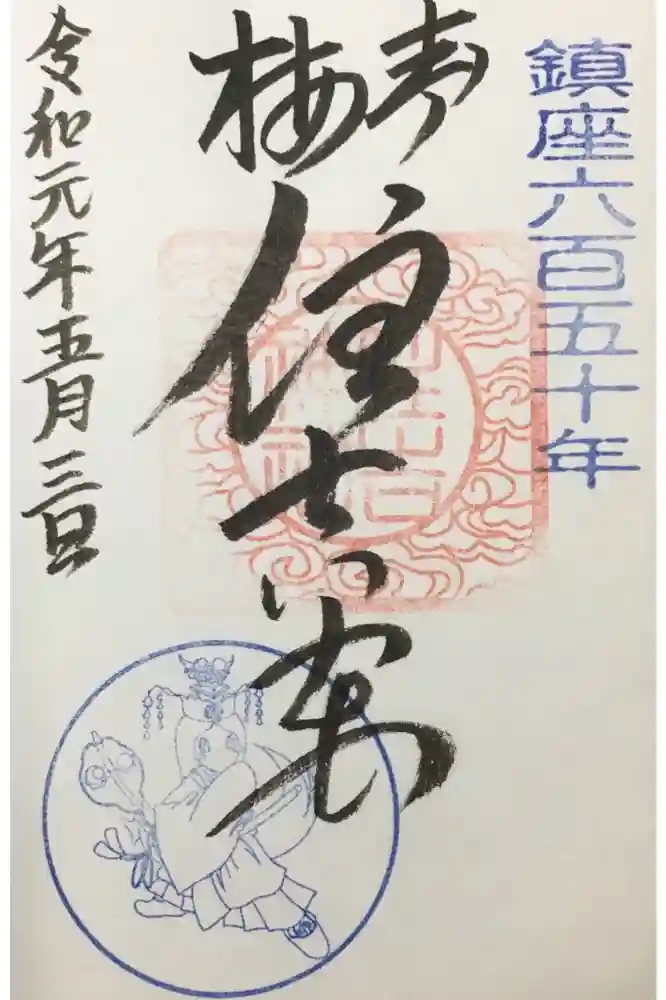 鎮座六百五十年
青梅
住吉
令和元年五月三日
住吉
神社